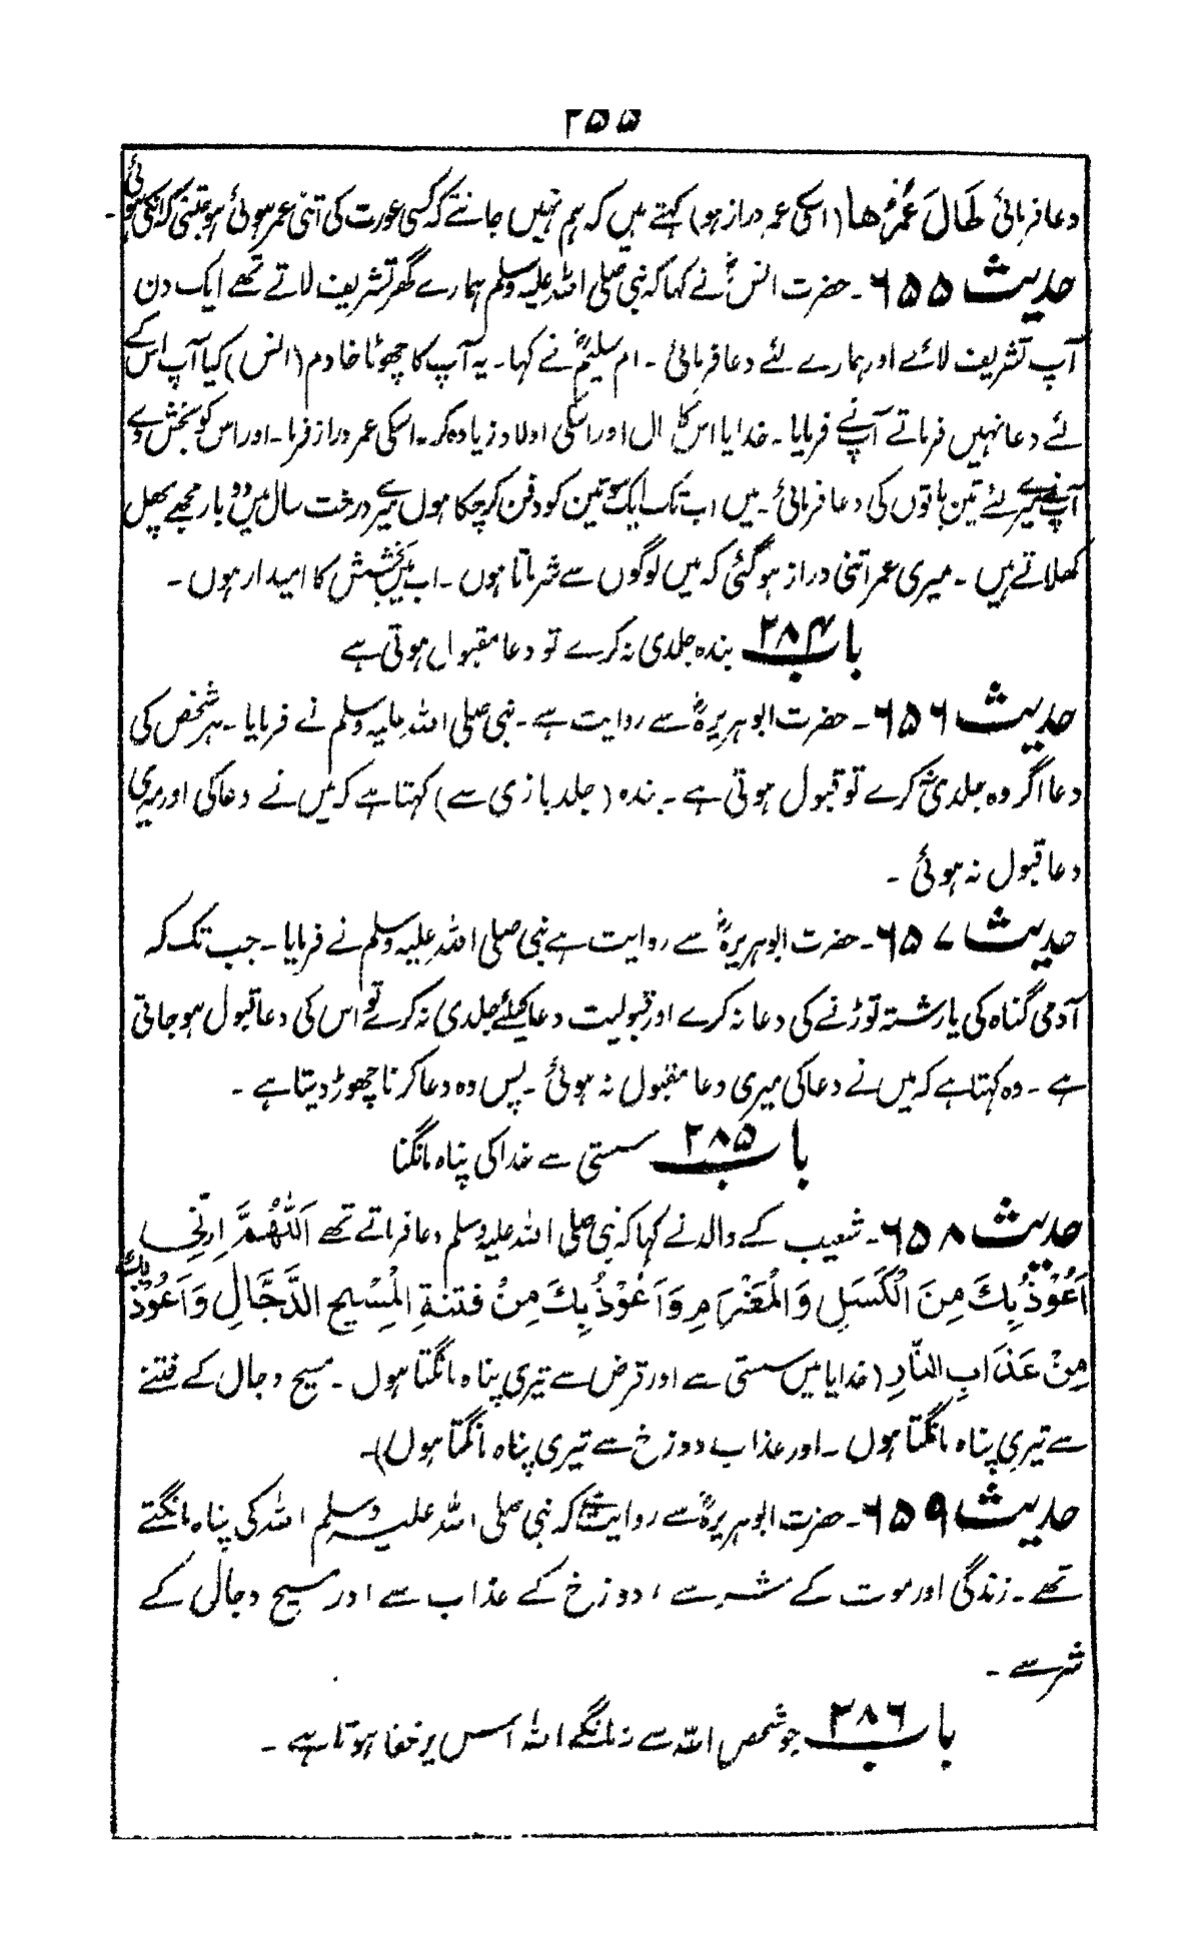 ۲۵۵
دعا فرمائی طَالَ عُمُرُھا (اسکی عمر دراز ہو) کہتے ہیں کہ ہم نہیں جانتے کہ کسی عورت کی اتنی عمر ہوئی ہو جتنی کہ انکی ہوئی۔
حدیث ۶۵۵۔ حضرت انسؓ نے کہا کہ نبی صلی اللہ علیہ وسلم ہمارے گھر تشریف لاتے تھے ایک دن
آپ تشریف لائے اور ہمارے لئے دعا فرمائی ۔ ام سلیمؓ نے کہا۔ یہ آپ کا چھوٹا خادم (انس) کیا آپ اس کے
لئے دعا نہیں فرماتے آپنے فرمایا ۔ خدایا اس کا مال اور اسکی اولاد زیادہ کر۔ اسکی عمر دراز فرما۔ اور اس کو بخش دے
آپنے میرے لئے تین باتوں کی دعا فرمائی ۔ میں اب تک ایک سو تین کو دفن کر چکا ہوں میرے درخت سال میں دو بار مجھے پھل
کھلاتے ہیں ۔ میری عمر اتنی دراز ہو گئی کہ میں لوگوں سے شرماتا ہوں ۔ اب میں بخشش کا امیدار ہوں ۔
باب ۲۸۴ بندہ جلدی نہ کرے تو دعا مقبول ہوتی ہے
حدیث ۶۵۶۔ حضرت ابو ہریرہؓ سے روایت ہے ۔ نبی صلی اللہ علیہ وسلم نے فرمایا ۔ ہر شخص کی
دعا اگر وہ جلدی نہ کرے تو قبول ہوتی ہے ۔ بندہ (جلد بازی سے) کہتا ہے کہ میں نے دعا کی اور میری
دعا قبول نہ ہوئی ۔
حدیث ۶۵۷۔ حضرت ابو ہریرہؓ سے روایت ہے نبی صلی اللہ علیہ وسلم نے فرمایا ۔ جب تک کہ
آدمی گناہ کی یا رشتہ توڑنے کی دعا نہ کرے اور قبولیت دعا کیلئے جلدی نہ کرے تو اس کی دعا قبول ہو جاتی
ہے ۔ وہ کہتا ہے کہ میں نے دعا کی میری دعا مقبول نہ ہوئی ۔ پس وہ دعا کرنا چھوڑ دیتا ہے ۔
باب ۲۸۵ سستی سے خدا کی پناہ مانگنا
حدیث ۶۵۸۔ شعیب کے والد نے کہا کہ نبی صلی اللہ علیہ وسلم دعا فرماتے تھے اَللّٰھُمَّ اِنِّی
اَعُوْذُ بِكَ مِنَ الْكَسَلِ وَالْمَغْرَمِ وَاَعُوْذُ بِكَ مِنْ فِتْنَةِ الْمَسِيْحِ الدَّجَّالِ وَاَعُوْذُ بِكَ
مِنْ عَذَابِ النَّارِ (خدایا میں سستی سے اور قرض سے تیری پناہ مانگتا ہوں ۔ مسیح دجال کے فتنے
سے تیری پناہ مانگتا ہوں ۔ اور عذاب دوزخ سے تیری پناہ مانگتا ہوں)۔
حدیث ۶۵۹۔ حضرت ابو ہریرہؓ سے روایت ہے کہ نبی صلی اللہ علیہ وسلم اللہ کی پناہ مانگتے
تھے ۔ زندگی اور موت کے شر سے ، دوزخ کے عذاب سے اور مسیح دجال کے
شر سے ۔
باب ۲۸۶ جو شخص اللہ سے نہ مانگے اللہ اس پر خفا ہوتا ہے ۔